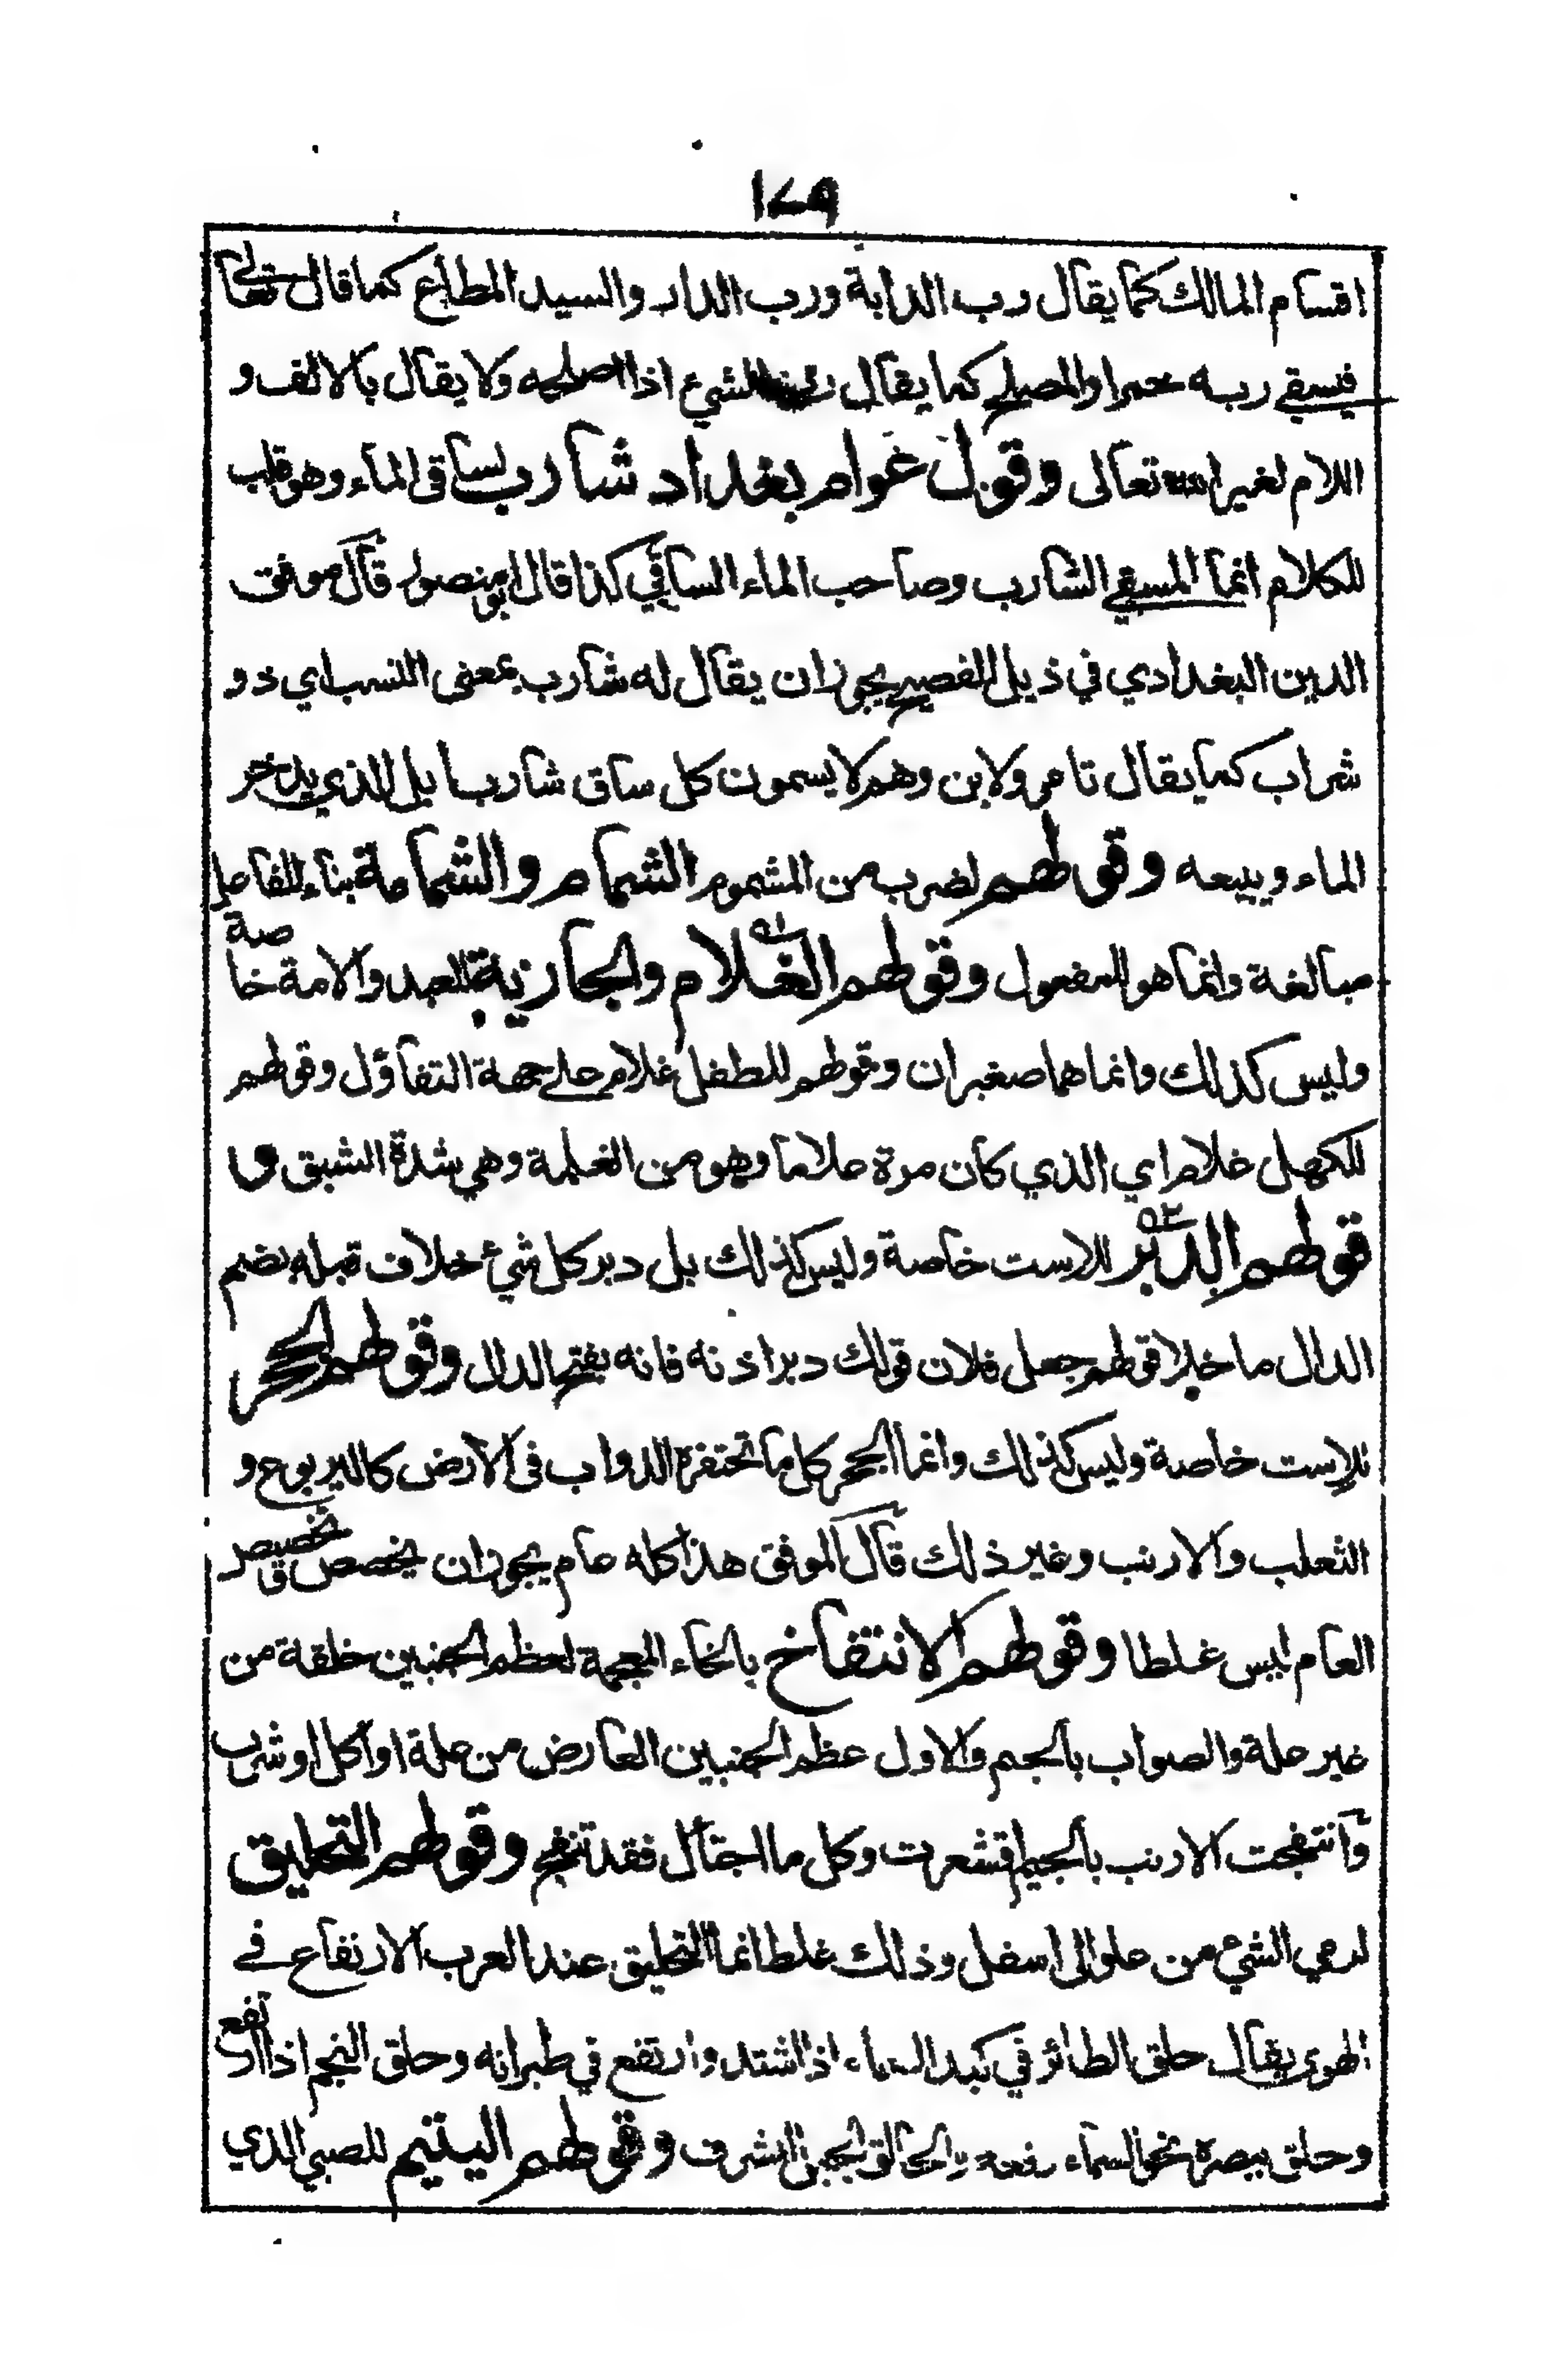 ١٧٩
اقسام المالك كما يقال رب الدابة ورب الدار والسيد المطاع كما قال تعالى
فيسقي ربه خمرا والمصلح كما يقال رب الشيء اذا اصلحه ولا يقال بالالف و
اللام لغير الله تعالى وقول عوام بغداد شارب لساقى الماء وهو قلب
للكلام انما المسقي الشارب وصاحب الماء الساقي كذا قال ابو منصور قال موفق
الدين البغدادي في ذيل الفصيح يجوز ان يقال له شارب بمعنى النسب اي ذو
شراب كما يقال تامر ولابن وهم لا يسمون كل ساق شاربا بل الذي يدخر
الماء ويبيعه وقولهم لضرب من المشموم الشمام والشمامة بناء للفاعل
مبالغة وانما هو المفعول وقولهم الغلام والجارية للعبد والامة خاصة
وليس كذلك وانما هما صغيران وقولهم للطفل غلام على جهة التفاؤل وقولهم
للكهل غلام اي الذي كان مرة غلاما وهو من الغلمة وهي شدة الشبق و
قولهم الدبر للاست خاصة وليس كذلك بل دبر كل شيء خلاف قبله بضم
الدال ما خلا قولهم جعل فلان قولك دبر اذنه فانه بفتح الدال وقولهم الجحر
للاست خاصة وليس كذلك وانما الجحر كل ما تحتفره الدواب فى الارض كاليربوع و
الثعلب والارنب وغير ذلك قال الموفق هذا كله عام يجوز ان يخصص وتخصيص
العام ليس غلطا وقولهم الانتفاخ بالخاء المعجمة لعظم الجنبين خلقة من
غير علة والصواب بالجيم والاول عظم الجنبين العارض من علة او اكل او شرب
وانتفجت الارنب بالجيم اقشعرت وكل ما اجتأل فقد تنفج وقولهم التحليق
لرمي الشيء من علو الى اسفل وذلك غلط انما التحليق عند العرب الارتفاع في
الهوى يقال حلق الطائر في كبد السماء اذا اشتد وارتفع في طيرانه وحلق النجم اذا ارتفع
وحلق ببصره نحو السماء رفعه والحالق الجبل المشرف وقولهم اليتيم للصبي الذي